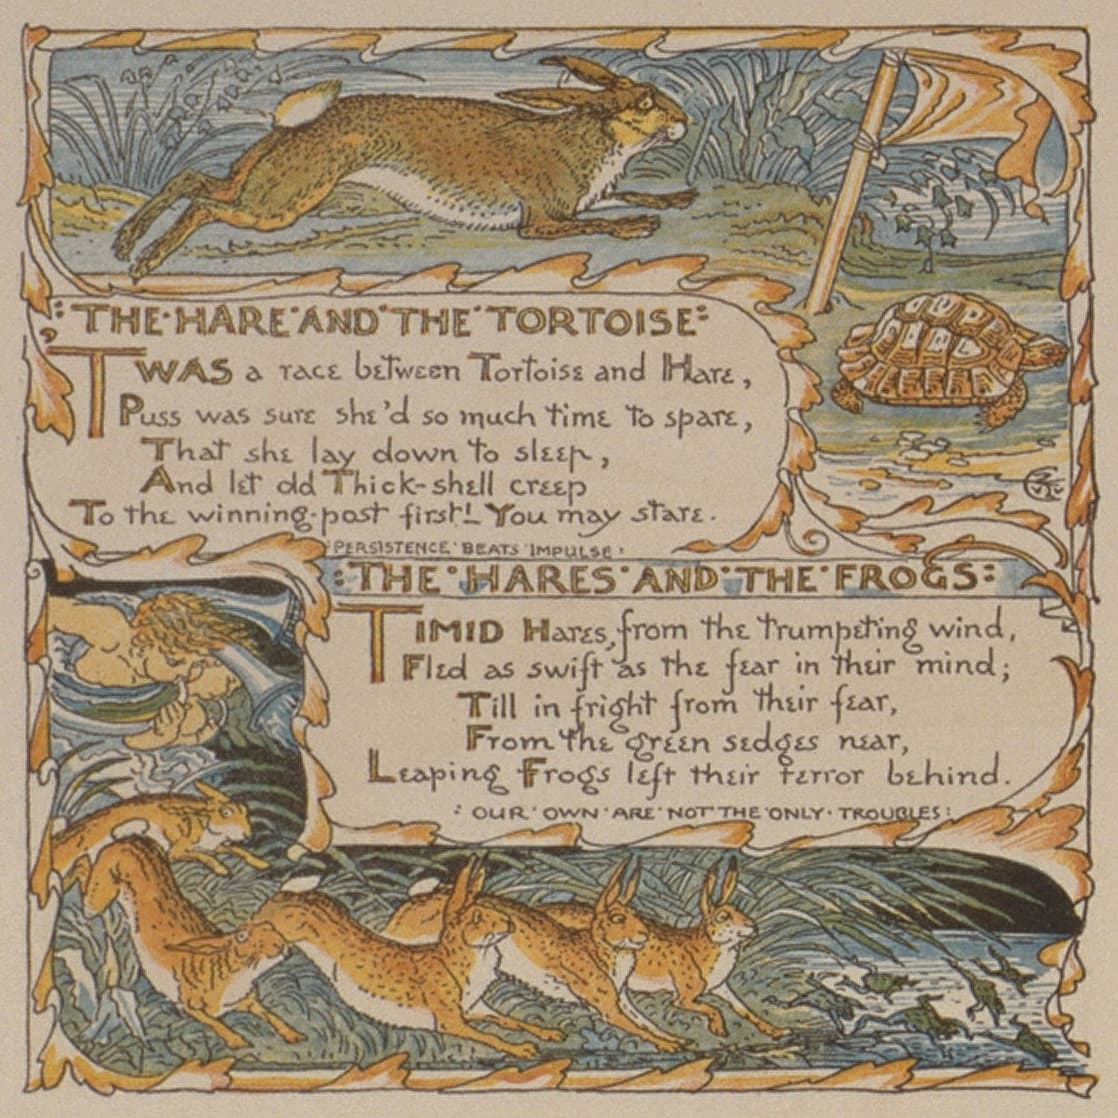 :THE·HARE·AND·THE·TORTOISE:
TWAS a race between Tortoise and Hare,
Puss was sure she'd so much time to spare,
That she lay down to sleep,
And let old Thick-shell creep
To the winning-post first! You may stare.
·PERSISTENCE·BEATS·IMPULSE·
:THE·HARES·AND·THE·FROGS:
TIMID Hares, from the trumpeting wind,
Fled as swift as the fear in their mind;
Till in fright from their fear,
From the green sedges near,
Leaping Frogs left their terror behind.
:OUR·OWN·ARE·NOT·THE·ONLY·TROUBLES: